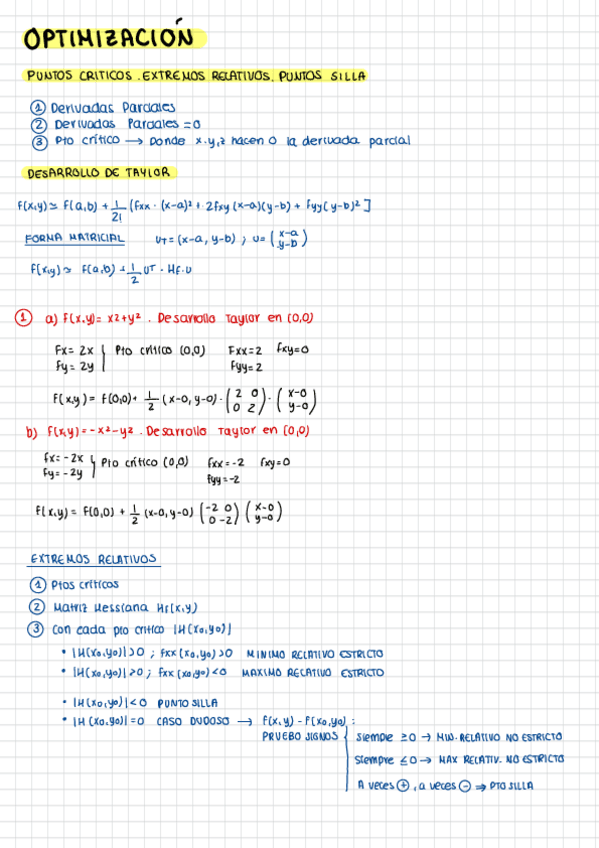 OPTIMIZACIÓN
PUNTOS CRITICOS. EXTREMOS RELATIVOS. PUNTOS SILLA
① Derivadas Parciales
② Derivadas Parciales = 0
③ Pto crítico → Donde x,y,z hacen 0 la derivada parcial
DESARROLLO DE TAYLOR
F(x,y) ≃ F(a,b) + 1/2! [fxx · (x-a)² + 2fxy (x-a)(y-b) + fyy (y-b)²]
FORMA MATRICIAL UT = (x-a, y-b) ; U = (x-a y-b)
F(x,y) ≃ F(a,b) + 1/2 UT · HF · U
① a) F(x,y) = x2+y². Desarrollo Taylor en (0,0)
Fx = 2x } Pto crítico (0,0) Fxx=2 fxy=0
Fy = 2y Fyy=2
F(x,y) = F(0,0) + 1/2 (x-0, y-0) · (2 0 0 2) · (x-0 y-0)
b) F(x,y) = -x²-y². Desarrollo Taylor en (0,0)
fx = -2x } Pto crítico (0,0) fxx=-2 fxy=0
Fy = -2y fyy=-2
F(x,y) = F(0,0) + 1/2 (x-0, y-0) (-2 0 0 -2) (x-0 y-0)
EXTREMOS RELATIVOS
① Ptos críticos
② Matriz Hessiana Hf(x,y)
③ Con cada pto crítico |H(x0,y0)|
• |H(x0,y0)|>0 ; fxx(x0,y0)>0 MINIMO RELATIVO ESTRICTO
• |H(x0,y0)|>0 ; fxx(x0,y0)<0 MAXIMO RELATIVO ESTRICTO
• |H(x0,y0)|<0 PUNTO SILLA
• |H(x0,y0)|=0 CASO DUDOSO → f(x,y) - F(x0,y0) :
PRUEBO SIGNOS { siempre ≥0 → MIN. RELATIVO NO ESTRICTO
siempre ≤0 → MAX RELATIV. NO ESTRICTO
A veces ⊕, a veces ⊖ ⇒ PTO SILLA